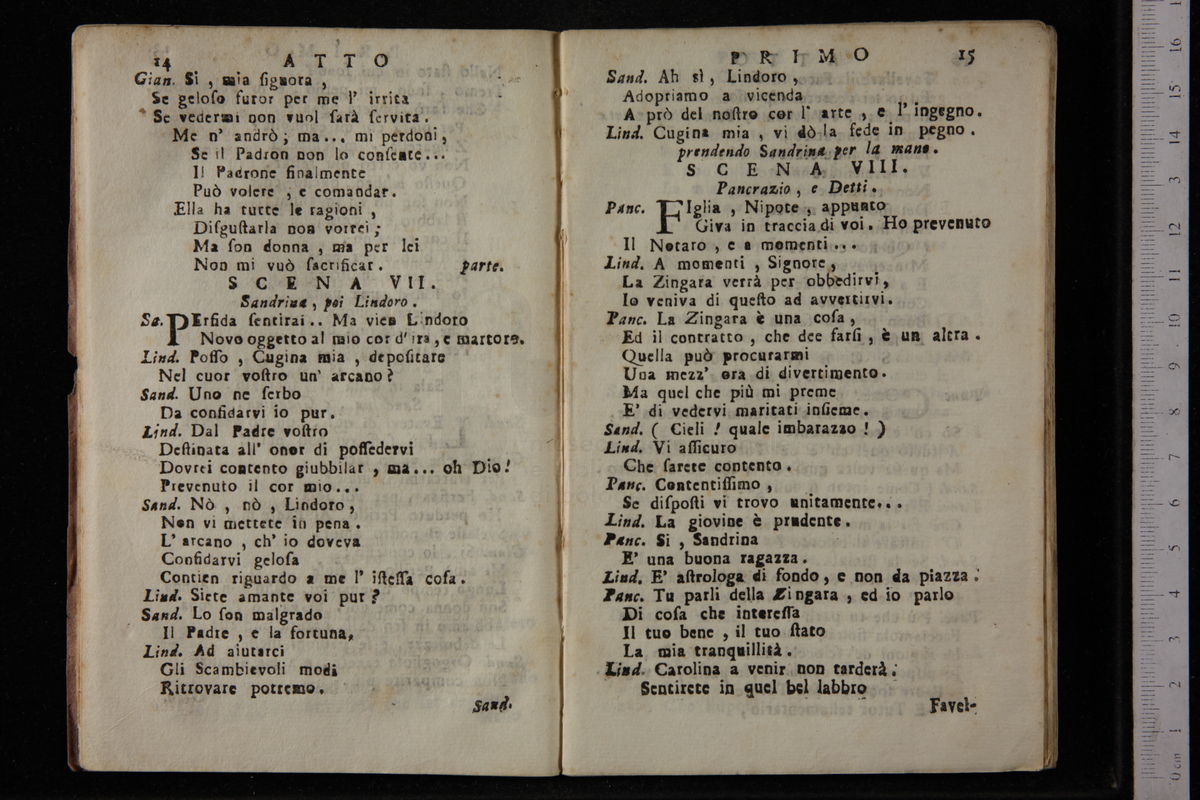 14 ATTO
Gian. Sì, mia ſignora,
Se geloſo furor per me l' irrita
Se vedermi non vuol ſarà ſervita.
Me n' andrò; ma... mi perdoni,
Se il Padron non lo conſente...
Il Padrone finalmente
Può volere, e comandar.
Ella ha tutte le ragioni,
Diſguſtarla non vorrei;
Ma ſon donna, ma per lei
Non mi vuò ſacrificar. parte.
SCENA VII.
Sandrina, poi Lindoro.
Sa. PErfida ſentirai.. Ma vien Lindoro
Novo oggetto al mio cor d' ira, e martoro.
Lind. Poſſo, Cugina mia, depoſitare
Nel cuor voſtro un' arcano?
Sand. Uno ne ſerbo
Da confidarvi io pur.
Lind. Dal Padre voſtro
Deſtinata all' onor di poſſedervi
Dovrei contento giubbilar, ma... oh Dio!
Prevenuto il cor mio...
Sand. Nò, nò, Lindoro,
Non vi mettete in pena.
L' arcano, ch' io doveva
Confidarvi geloſa
Contien riguardo a me l' iſteſſa coſa.
Lind. Siete amante voi pur?
Sand. Lo ſon malgrado
Il Padre, e la fortuna,
Lind. Ad aiutarci
Gli Scambievoli modi
Ritrovare potremo.
Sand.
PRIMO 15
Sand. Ah sì, Lindoro,
Adopriamo a vicenda
A prò del noſtro cor l' arte, e l' ingegno.
Lind. Cugina mia, vi dò la fede in pegno.
prendendo Sandrina per la mano.
SCENA VIII.
Pancrazio, e Detti.
Panc. FIglia, Nipote, appunto
Giva in traccia di voi. Ho prevenuto
Il Notaro, e a momenti...
Lind. A momenti, Signore,
La Zingara verrà per obbedirvi,
Io veniva di queſto ad avvertirvi.
Panc. La Zingara è una coſa,
Ed il contratto, che dee farſi, è un altra.
Quella può procurarmi
Una mezz' ora di divertimento.
Ma quel che più mi preme
E' di vedervi maritati inſieme.
Sand. (Cieli! quale imbarazzo!)
Lind. Vi aſſicuro
Che ſarete contento.
Panc. Contentiſſimo,
Se diſpoſti vi trovo unitamente...
Lind. La giovine è prudente.
Panc. Si, Sandrina
E' una buona ragazza.
Lind. E' aſtrologa di fondo, e non da piazza.
Panc. Tu parli della Zingara, ed io parlo
Di coſa che intereſſa
Il tuo bene, il tuo ſtato
La mia tranquillità.
Lind. Carolina a venir non tarderà:
Sentirete in quel bel labbro
Favel-
0 cm 1 2 3 4 5 6 7 8 9 10 11 12 13 14 15 16